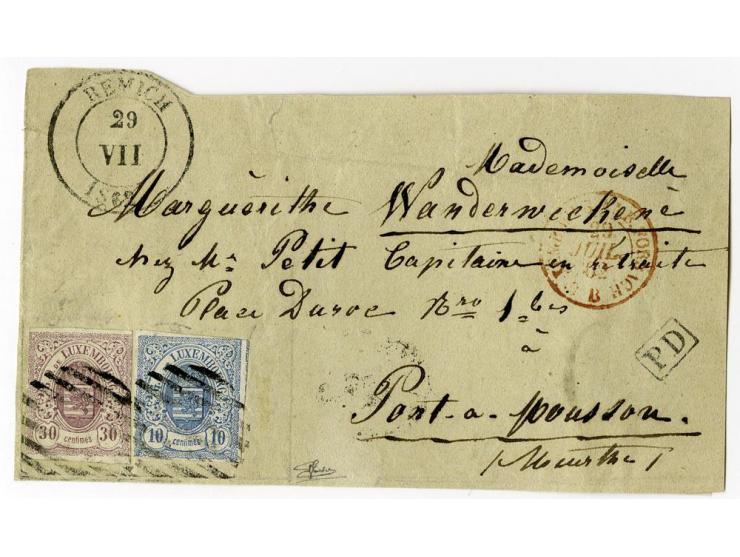 REMICH
29
VII
Mademoiselle
Marguèrithe Wanderweckenè
chez Mr Petit Capitaine en retraite
Place Duroc Nro 1
à
Pont-a-Mousson.
(Meurthe)
29
JUIL
B
PD
LUXEMBOURG
30 centimes 30
LUXEMBOURG
10 centimes 10